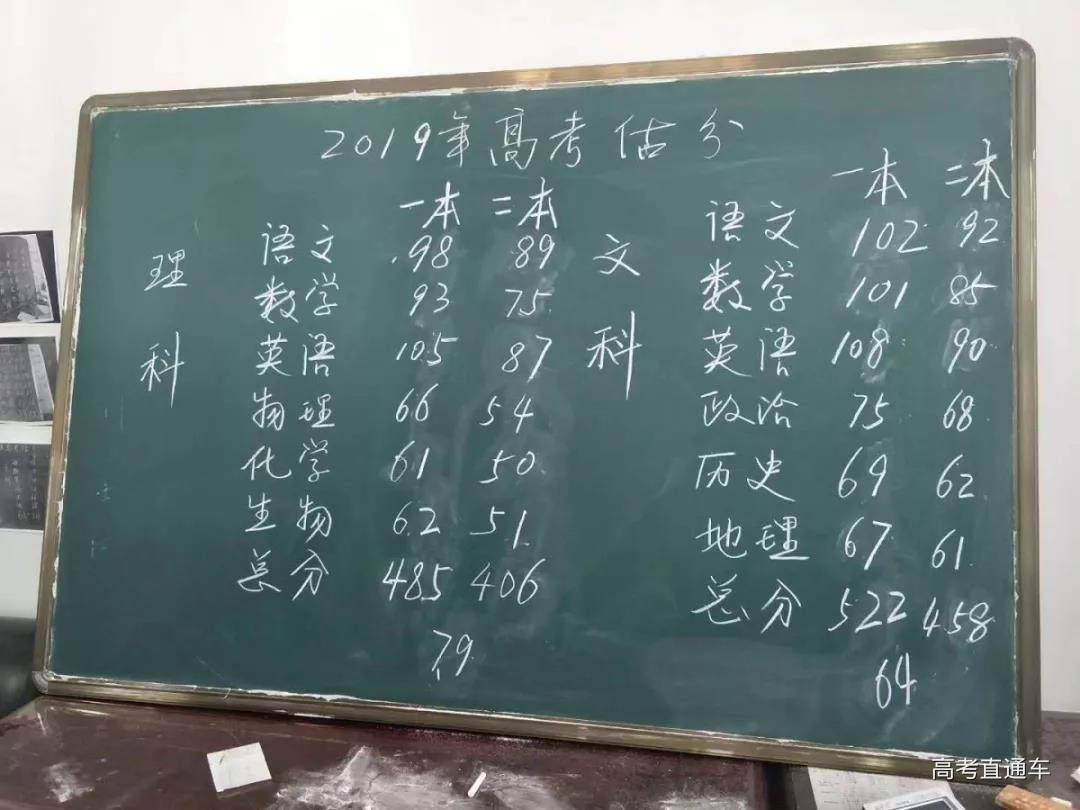 2019年高考估分
理科
一本 二本
语文 98 89
数学 93 75
英语 105 87
物理 66 54
化学 61 50
生物 62 51
总分 485 406
79
文科
一本 二本
语文 102 92
数学 101 85
英语 108 90
政治 75 68
历史 69 62
地理 67 61
总分 522 458
64
高考直通车